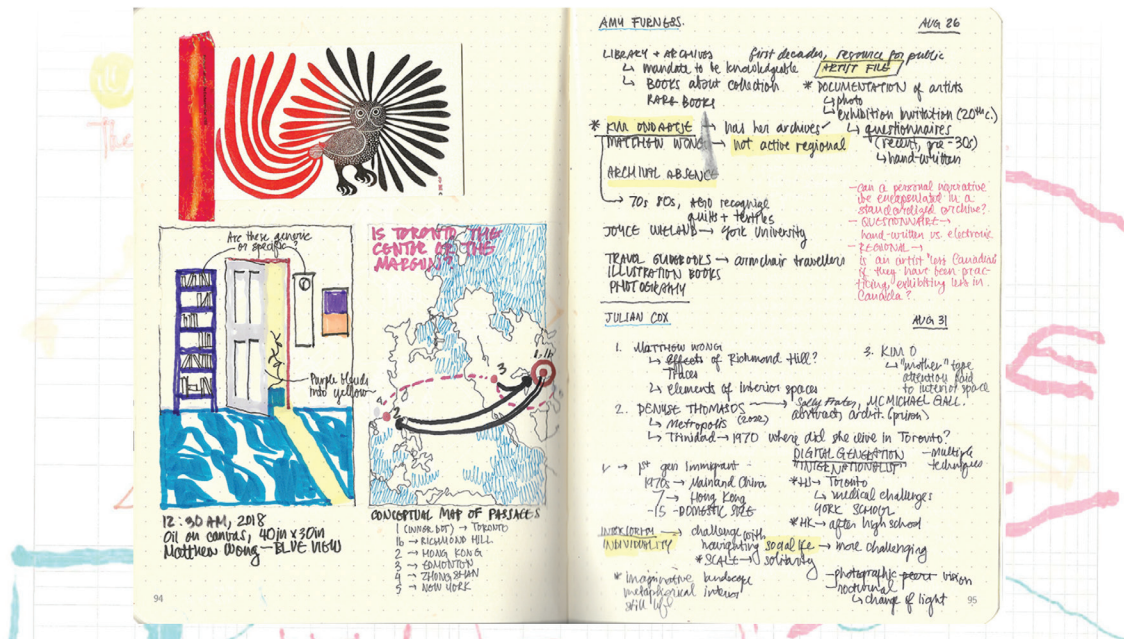 Are these generic
or specific?
Purple bleeds
into yellow
12:30 AM, 2018
Oil on canvas, 40in x 30in
Matthew Wong — BLUE VIEW
94
IS TORONTO THE
CENTER OR THE
MARGIN?
1, 1b
3
2
CONCEPTUAL MAP OF PASSAGES
1 (INNER DOT) → TORONTO
1b → RICHMOND HILL
2 → HONG KONG
3 → EDMONTON
4 → ZHONGSHAN
5 → NEW YORK
AMY FURNESS.
AUG 26
LIBRARY + ARCHIVES
↳ mandate to be knowledgable
↳ BOOKS about collection
RARE BOOKS
first decades, resource for public
ARTIST FILE
* DOCUMENTATION of artists
↳ photo
↳ exhibition invitation (20th c.)
↳ questionnaires
(recent, pre-30s)
↳ hand-written
* KIM ONDAATJE → has her archives
MATTHEW WONG → not active regional
ARCHIVAL ABSENCE
→ 70s 80s, AGO recognize
quilts + textiles
JOYCE WIELAND → York University
TRAVEL GUIDEBOOKS → armchair travellers
ILLUSTRATION BOOKS
PHOTOGRAPHY
- can a personal narrative
be encapsulated in a
standardized archive?
- QUESTIONNAIRE →
hand-written vs. electronic
- REGIONAL →
Is an artist "less Canadian"
if they have been prac-
ticing, exhibiting less in
Canada?
JULIAN COX
AUG 31
1. MATTHEW WONG
↳ effects of Richmond Hill?
Traces
↳ elements of interior spaces
2. DENYSE THOMASOS → Sally Frater, MCMICHAEL GALL.
↳ Metropolis (2022)
abstract, archit. (prison)
↳ Trinidad → 1970 where did she live in Toronto?
3. KIM O
↳ "mother" type
attention paid
to interior space
DIGITAL GENERATION — multiple
techniques
"INTERNATIONALIST"
→ 1st gen immigrant
1970s → Mainland China
7 → Hong Kong
-15 - DOMESTIC SIZE
* HS → Toronto
↳ medical challenges
YORK SCHOOL
* HK → after high school
INDIVIDUALITY
→ challenge with
navigating social life → more challenging
* SCALE → solitary
* imaginative landscape
metaphorical interior
still life
→ photographic vision
→ nocturnal
↳ change of light
95